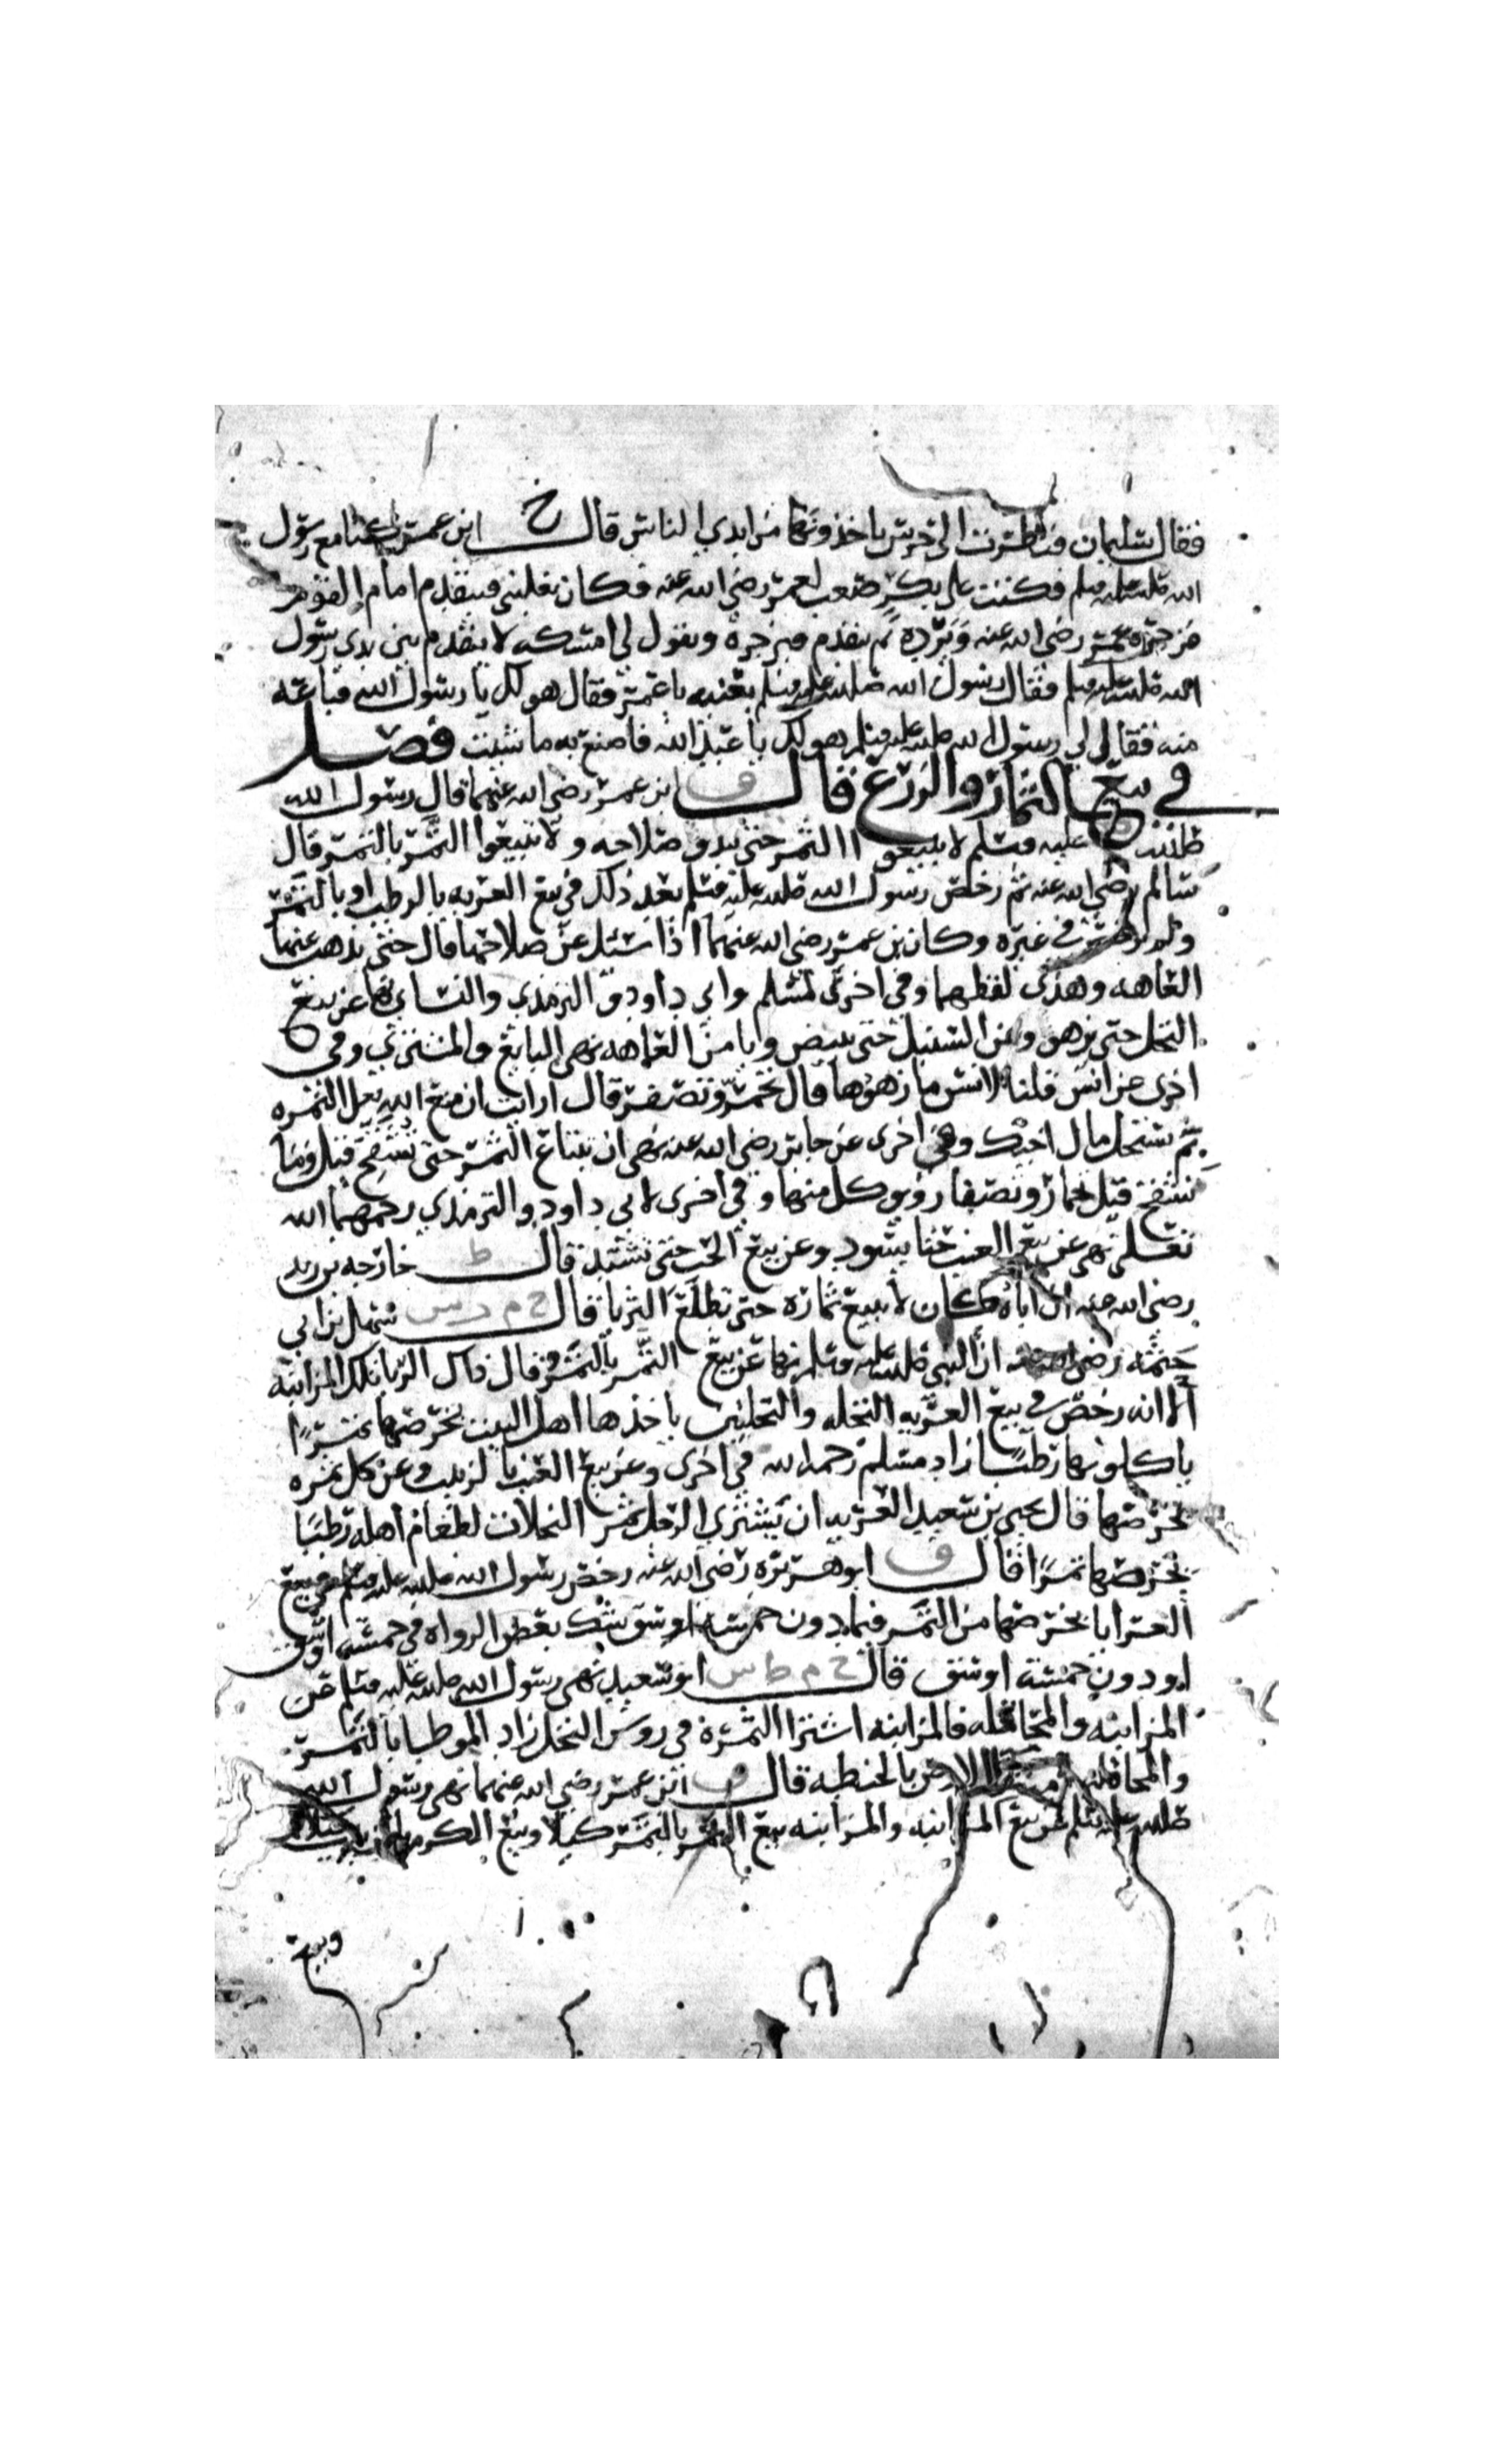 فقال سليمان فنظرت الى حرس ياخذونها من ايدي الناس قال خ ابن عمر كنا مع رسول
الله صلى الله عليه وسلم فكنت على بكر صعب لعمر رضي الله عنه فكان يغلبني فيتقدم امام القوم
فزجره عمر رضي الله عنه ويرده ثم يتقدم فيزجره ويقول لي امسكه لا يتقدم بين يدي رسول
الله صلى الله عليه وسلم فقال رسول الله صلى الله عليه وسلم بعنيه يا عمر فقال هو لك يا رسول الله فباعه
منه فقال لي رسول الله صلى الله عليه وسلم هو لك يا عبد الله فاصنع به ما شيت فصل
في بيع الثمار والزرع قال ق ابن عمر رضي الله عنهما قال رسول الله
صلى الله عليه وسلم لا تبيعوا الثمر حتى يبدو صلاحه ولا تبيعوا الثمر بالتمر قال
سالم رضي الله عنه ثم رخص رسول الله صلى الله عليه وسلم بعد ذلك في بيع العريه بالرطب او بالتمر
ولم يرخص في غيره وكان بن عمر رضي الله عنهما اذا سئل عن صلاحها قال حتى تذهب عنها
العاهه وهذى لفظهما وفي اخرى لمسلم وابي داود والترمذي والنساي نها عن بيع
النخل حتى يزهو وعن السنبل حتى يبيض ويامن العاهه نهى البايع والمشتري وفي
اخرى عن انس قلنا لانس ما زهوها قال تحمر وتصفر قال ارايت ان منع الله الثمره
بم تستحل مال اخيك وفي اخرى عن جابر رضي الله عنه نهى ان يبتاع الثمر حتى تشقح قيل وما
تشقح قيل تحمار وتصفار ويوكل منها وفي اخرى لابي داود والترمذي رحمهما الله
تعلى نهى عن بيع العنب حتا يسود وعن بيع الحب حتى تشتد قال ط خارجه بن زيد
رضي الله عنه ان اباه كان لا يبيع ثماره حتى تطلع الثريا قال خ م د س سهل بن ابي
حثمه رضي الله عنه ان النبي صلى الله عليه وسلم نها عن بيع الثمر بالتمر وقال ذلك الربا تلك المزابنه
الا انه رخص في بيع العريه النخله والنخلتين ياخذها اهل البيت بخرصها تمرًا
ياكلونها رطبًا زاد مسلم رحمه الله في اخرى وعن بيع العنب بالزبيب وعن كل ثمره
بخرصها قال يحيى بن سعيد العريه ان يشتري الرجل ثمر النخلات لطعام اهله رطبًا
بخرصها تمرًا قال ق ابو هريره رضي الله عنه رخص رسول الله صلى الله عليه وسلم في بيع
العرايا بخرصها من التمر فيما دون خمسة اوسق شك بعض الرواه في خمسه اوسق
او دون خمسة اوسق قال خ م ط س ابو سعيد نهى رسول الله صلى الله عليه وسلم عن
المزابنه والمحاقله فالمزابنه اشترا الثمرة في روس النخل زاد الموطا بالتمر
والمحاقله الارض بالحنطه قال ق ابن عمر رضي الله عنهما نهى رسول الله
صلى الله عليه وسلم عن بيع المزابنه والمزابنه بيع الثمر بالتمر كيلا وبيع الكرم بالزبيب كيلا
وبيع